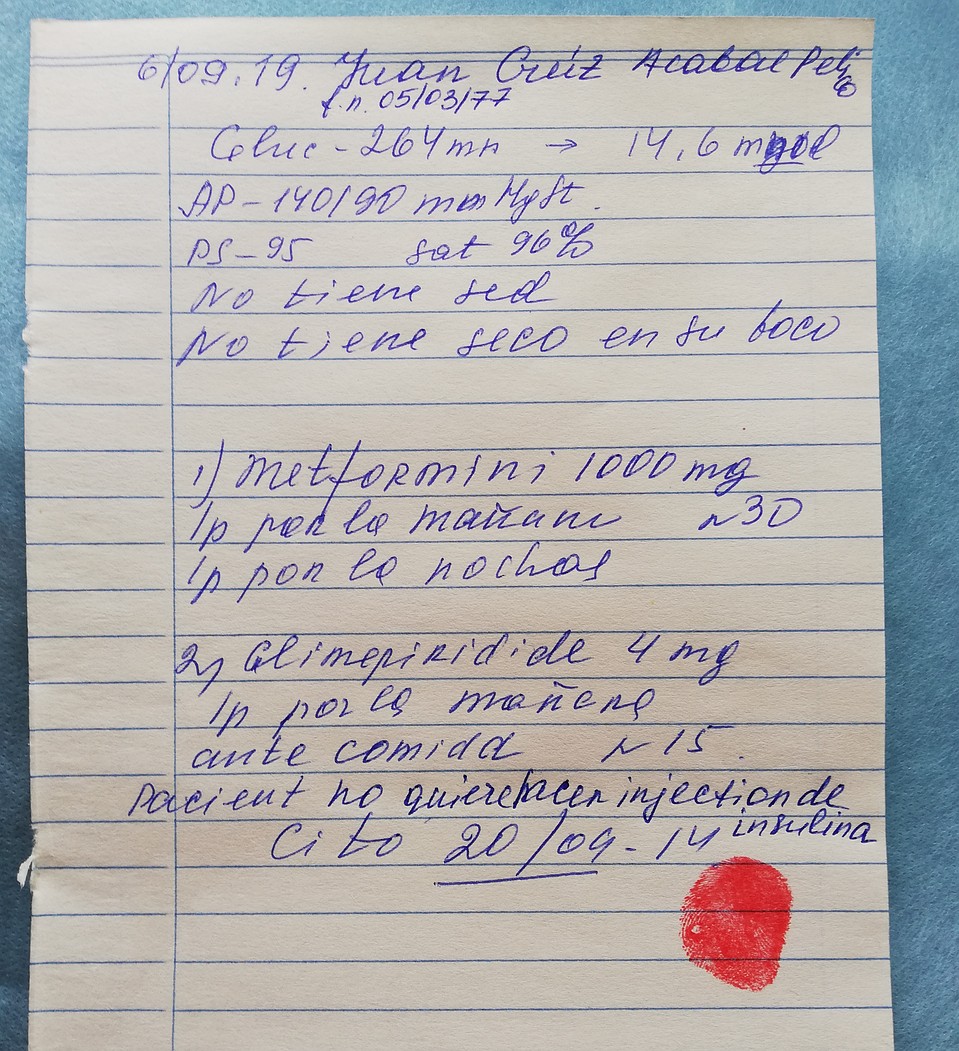 6/09.19. Juan Crúz Acabal Peliz
f.n. 05/03/77
Gluc - 264 mn → 14,6 mmol
AP - 140/90 mm Hg st.
PS - 95 sat 96%
No tiene sed
No tiene seco en su boco
1) Metformini 1000 mg
1p por la mañana N30
1p por la noches
2) Glimepiridide 4 mg
1p por la mañana
ante comida N 15.
Pacient no quiere hacer injection de
insulina
Cito 20/09 - 14